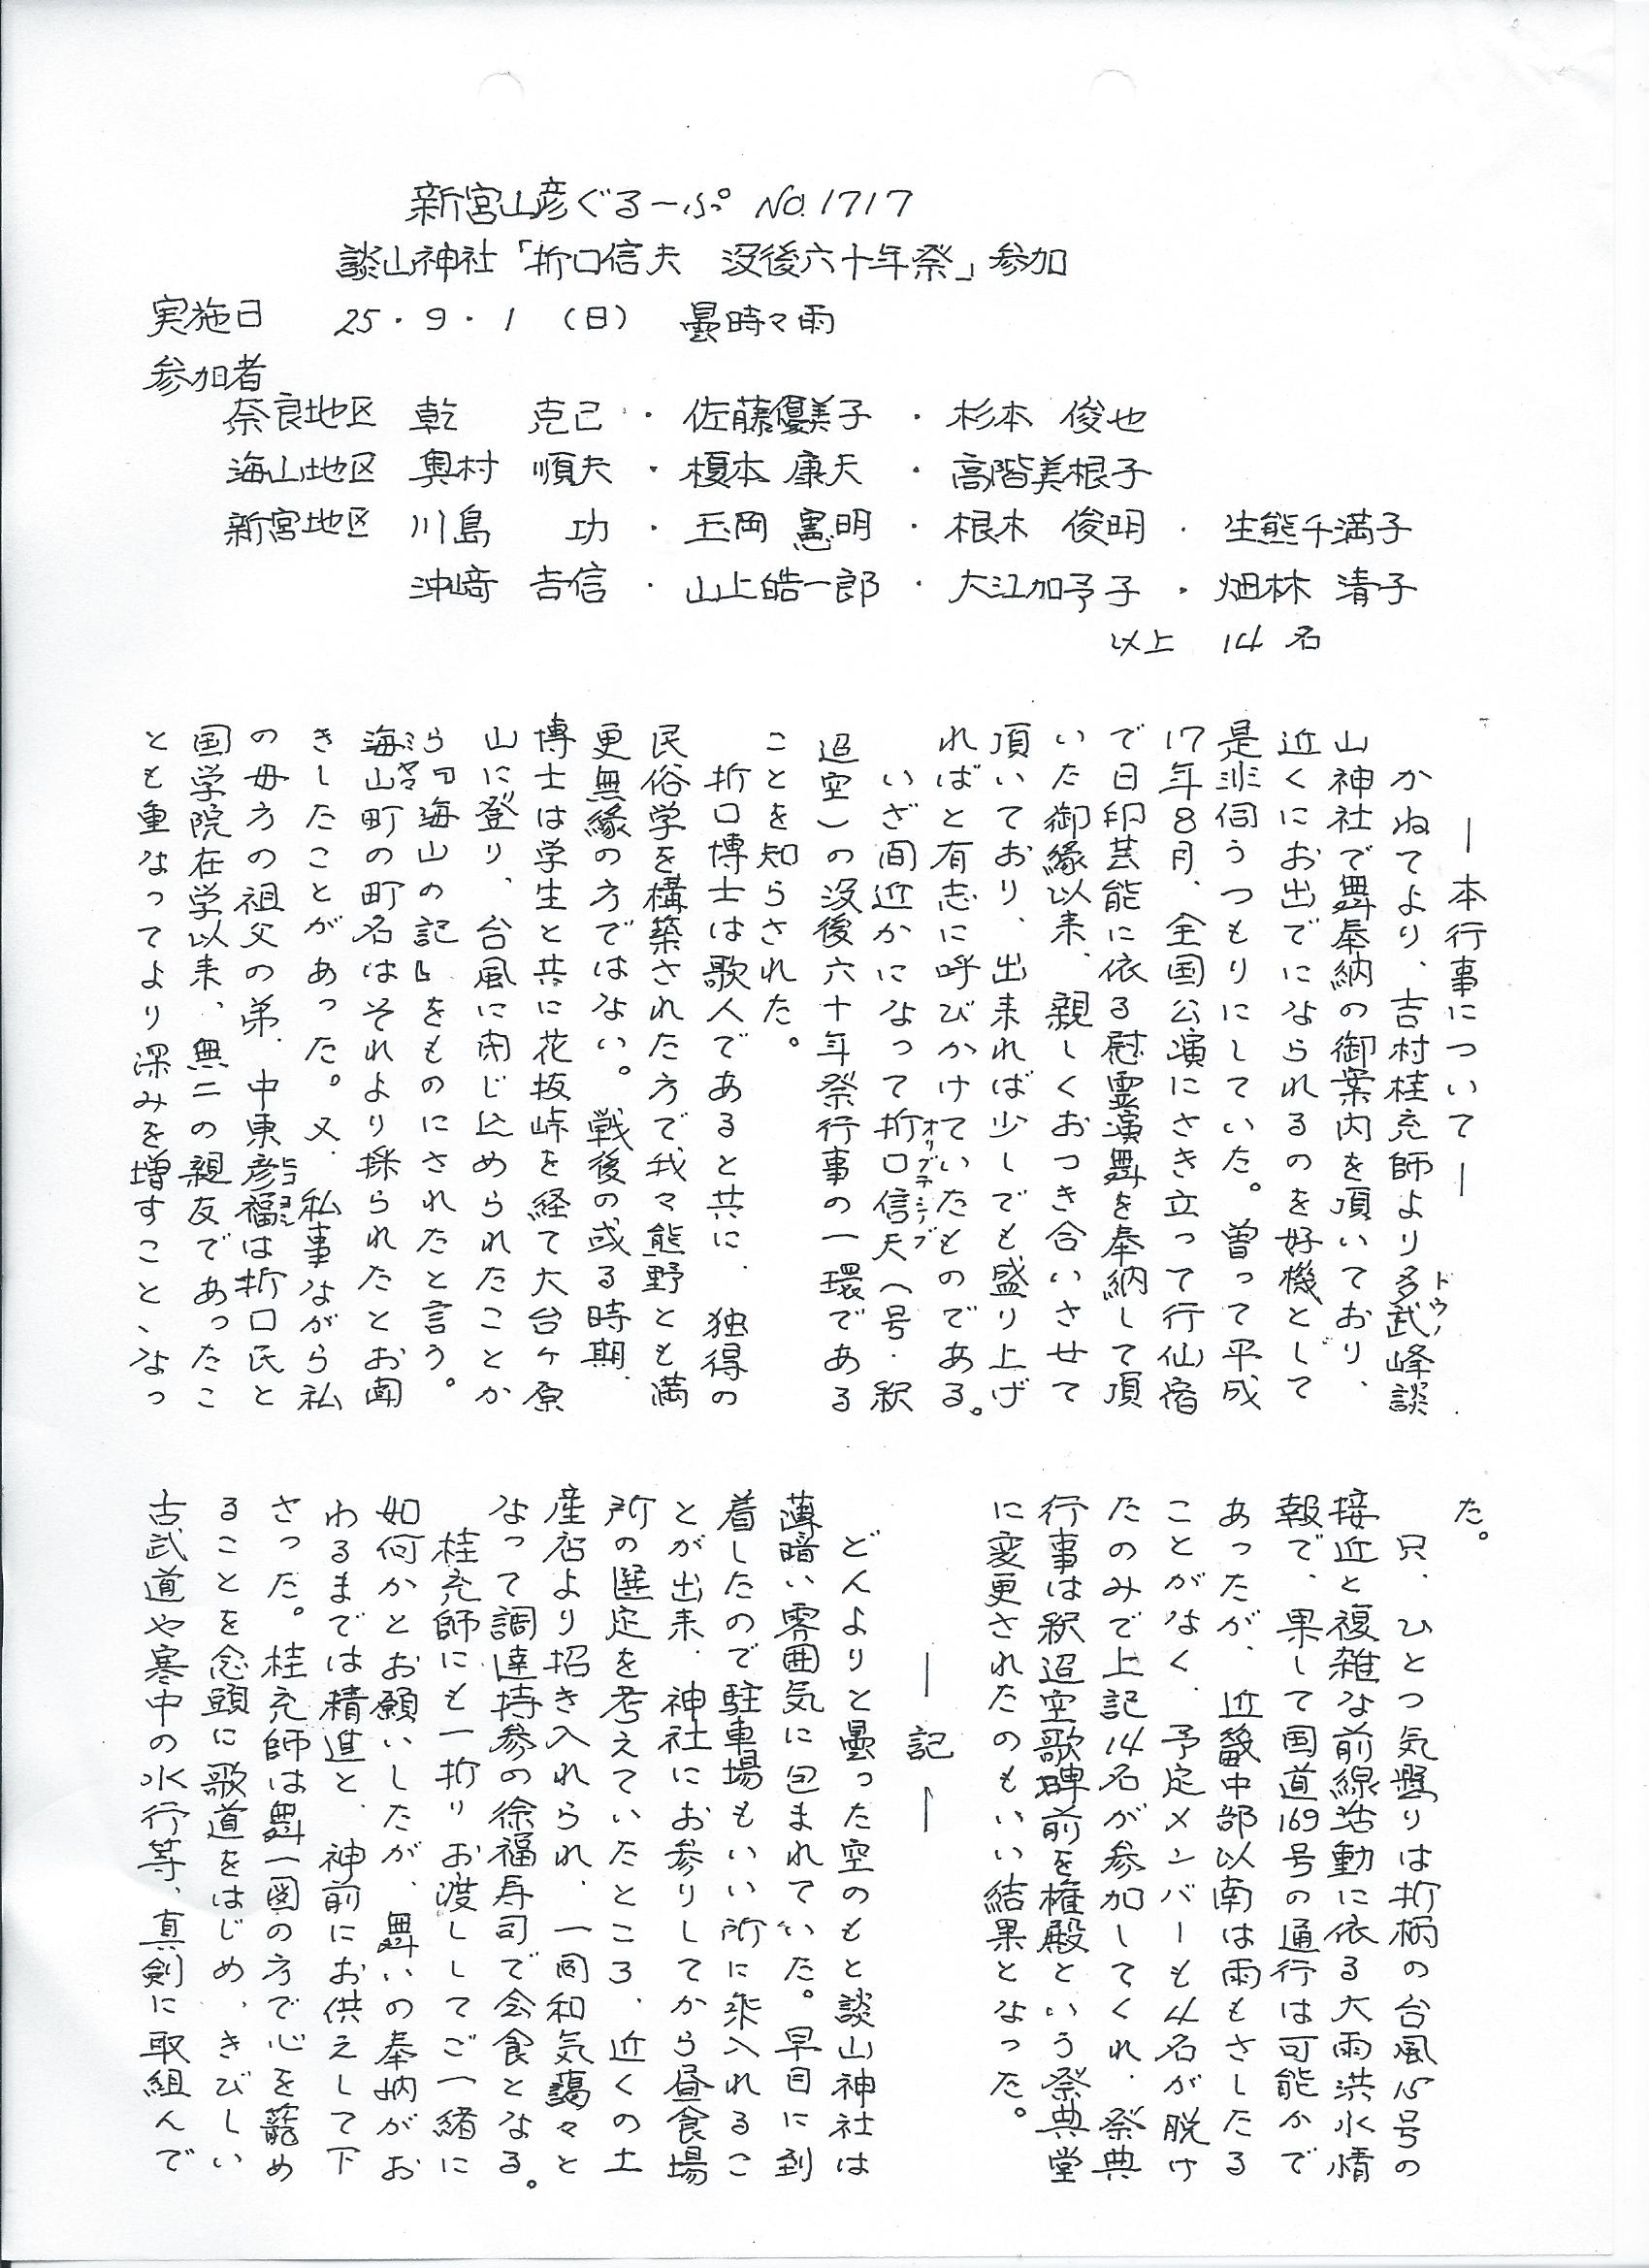 新宮山彦ぐるーぷ No.1717
談山神社「折口信夫 没後六十年祭」参加
実施日 25・9・1 (日) 曇時々雨
参加者
奈良地区 乾 克己 ・ 佐藤優美子 ・ 杉本 俊也
海山地区 奥村 順夫 ・ 榎本 康夫 ・ 高階美根子
新宮地区 川島 功 ・ 玉岡 憲明 ・ 根木 俊明 ・ 生熊千満子
沖﨑 吉信 ・ 山上皓一郎 ・ 大江加予子 ・ 畑林 清子
以上 14名
―本行事について―
かねてより、吉村桂充師より多武峰談
ドウノ
山神社で舞奉納の御案内を頂いており、
近くにお出でになられるのを好機として
是非伺うつもりにしていた。曽って平成
17年8月、全国公演にさき立って行仙宿
で日印芸能に依る慰霊演舞を奉納して頂
いた御縁以来、親しくおつき合いさせて
頂いており、出来れば少しでも盛り上げ
ればと有志に呼びかけていたものである。
いざ間近かになって折口信夫(号・釈
オリグチシノブ
迢空)の没後六十年祭行事の一環である
ことを知らされた。
折口博士は歌人であると共に、独得の
民俗学を構築された方で我々熊野とも満
更無縁の方ではない。戦後の或る時期、
博士は学生と共に花抜峠を経て大台ヶ原
山に登り、台風に閉じ込められたことか
ら『海山の記』をものにされたと言う。
海山町の町名はそれより採られたとお聞
ミヤマ
きしたことがあった。又、私事ながら私
の母方の祖父の弟、中東彦福は折口氏と
ヒコヨシ
国学院在学以来、無二の親友であったこ
とも重なってより深みを増すこと、なっ
た。
只、ひとつ気掛りは折柄の台風15号の
接近と複雑な前線活動に依る大雨洪水情
報で、果して国道169号の通行は可能かで
あったが、近畿中部以南は雨もさしたる
ことがなく、予定メンバーも4名が脱け
たのみで上記14名が参加してくれ、祭典
行事は釈迢空歌碑前を権殿という祭典堂
に変更されたのもいい結果となった。
―記―
どんよりと曇った空のもと談山神社は
薄暗い雰囲気に包まれていた。早目に到
着したので駐車場もいい所に乗入れるこ
とが出来、神社にお参りしてから昼食場
所の選定を考えていたところ、近くの土
産店より招き入れられ、一同和気藹々と
なって調達持参の徐福寿司で会食となる。
桂充師にも一折りお渡ししてご一緒に
如何かとお願いしたが、舞いの奉納がお
わるまでは精進と、神前にお供えして下
さった。桂充師は舞一図の方で心を籠め
ることを念頭に歌道をはじめ、きびしい
古武道や寒中の水行等、真剣に取組んで